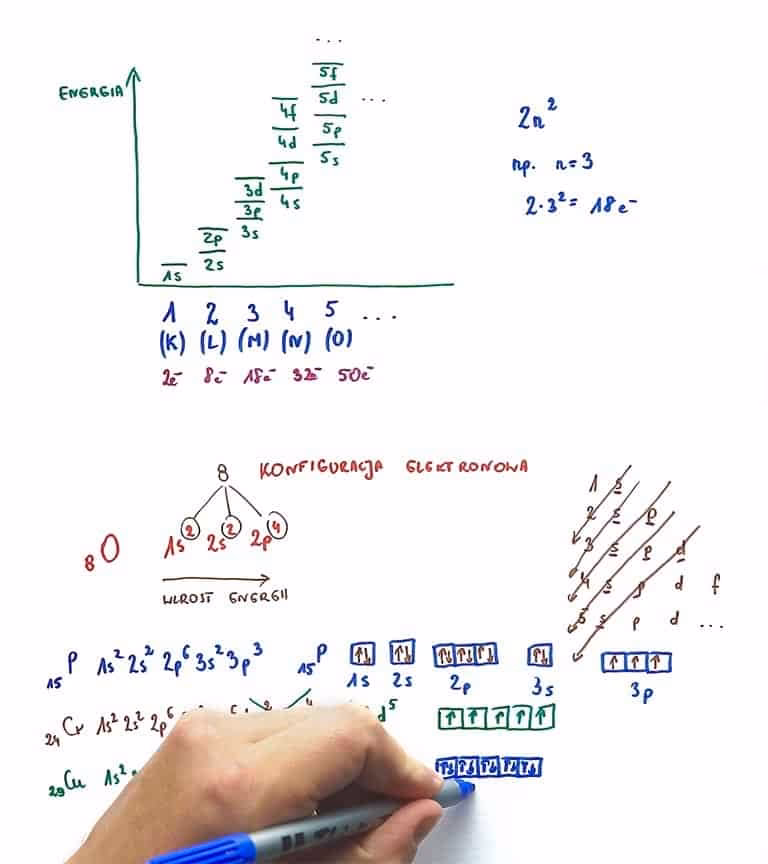 ...
5f
ENERGIA
5d ...
4f
5p
4d
5s
4p
3d
4s
3p
3s
2p
2s
1s
2n²
np. n=3
2·3²= 18e⁻
1 2 3 4 5 ...
(K) (L) (M) (N) (O)
2e⁻ 8e⁻ 18e⁻ 32e⁻ 50e⁻
8 KONFIGURACJA ELEKTRONOWA
₈O 1s² 2s² 2p⁴
WZROST ENERGII
1 s
2 s p
3 s p d
4 s p d f
5 s p d ...
₁₅P 1s² 2s² 2p⁶ 3s² 3p³ ₁₅P ↑↓ ↑↓ ↑↓ ↑↓ ↑↓ ↑↓ ↑ ↑ ↑
1s 2s 2p 3s 3p
₂₄Cr 1s² 2s² 2p⁶ d⁵ ↑ ↑ ↑ ↑ ↑
₂₉Cu 1s² ↑↓ ↑↓ ↑↓ ↑↓ ↑↓